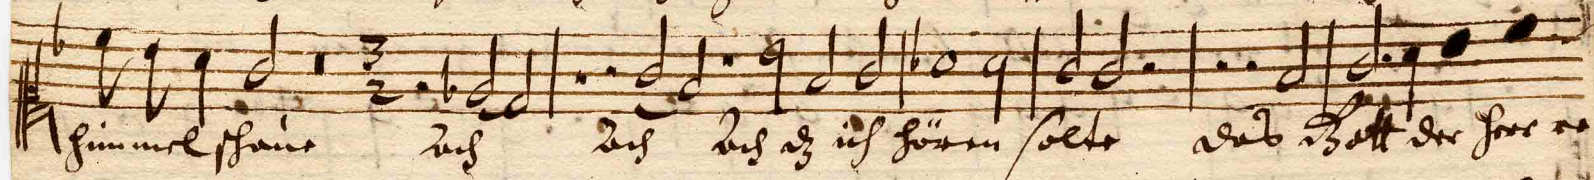 3
2
himmel schaue ach ach ach dz ich hören solte das Gott der herr re